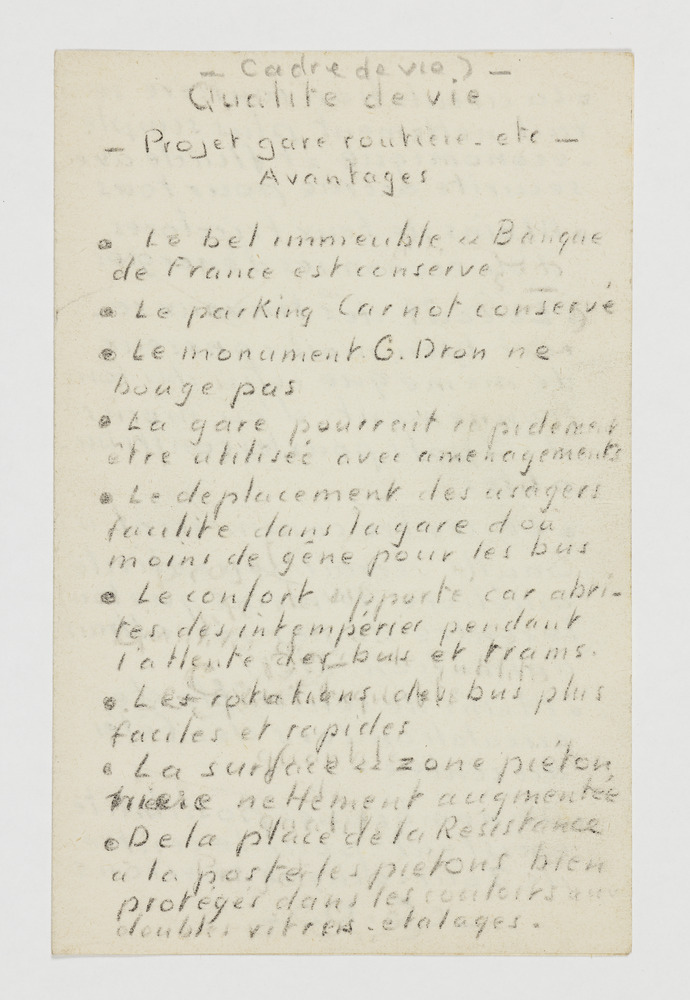 - Cadre de vie) -
Qualite de vie
- Projet gare routiere - etc -
Avantages
• Le bel immeuble "Banque
de France est conserve
• Le parking Carnot conservé
• Le monument G. Dron ne
bouge pas
• La gare pourrait rapidement
être utilisée avec amenagements
• Le deplacement des usagers
facilite dans la gare d'oa
moins de gêne pour les bus
• Le confort apporte car abri-
tes des intempéries pendant
l'attente des bus et trams.
• Les rotations des bus plus
faciles et rapides
• La surface zone piéton
niere nettement augmentée
• De la place de la Resistance
a la poste les piétons bien
protéges dans les couloirs aux
doubles vitres - etalages.